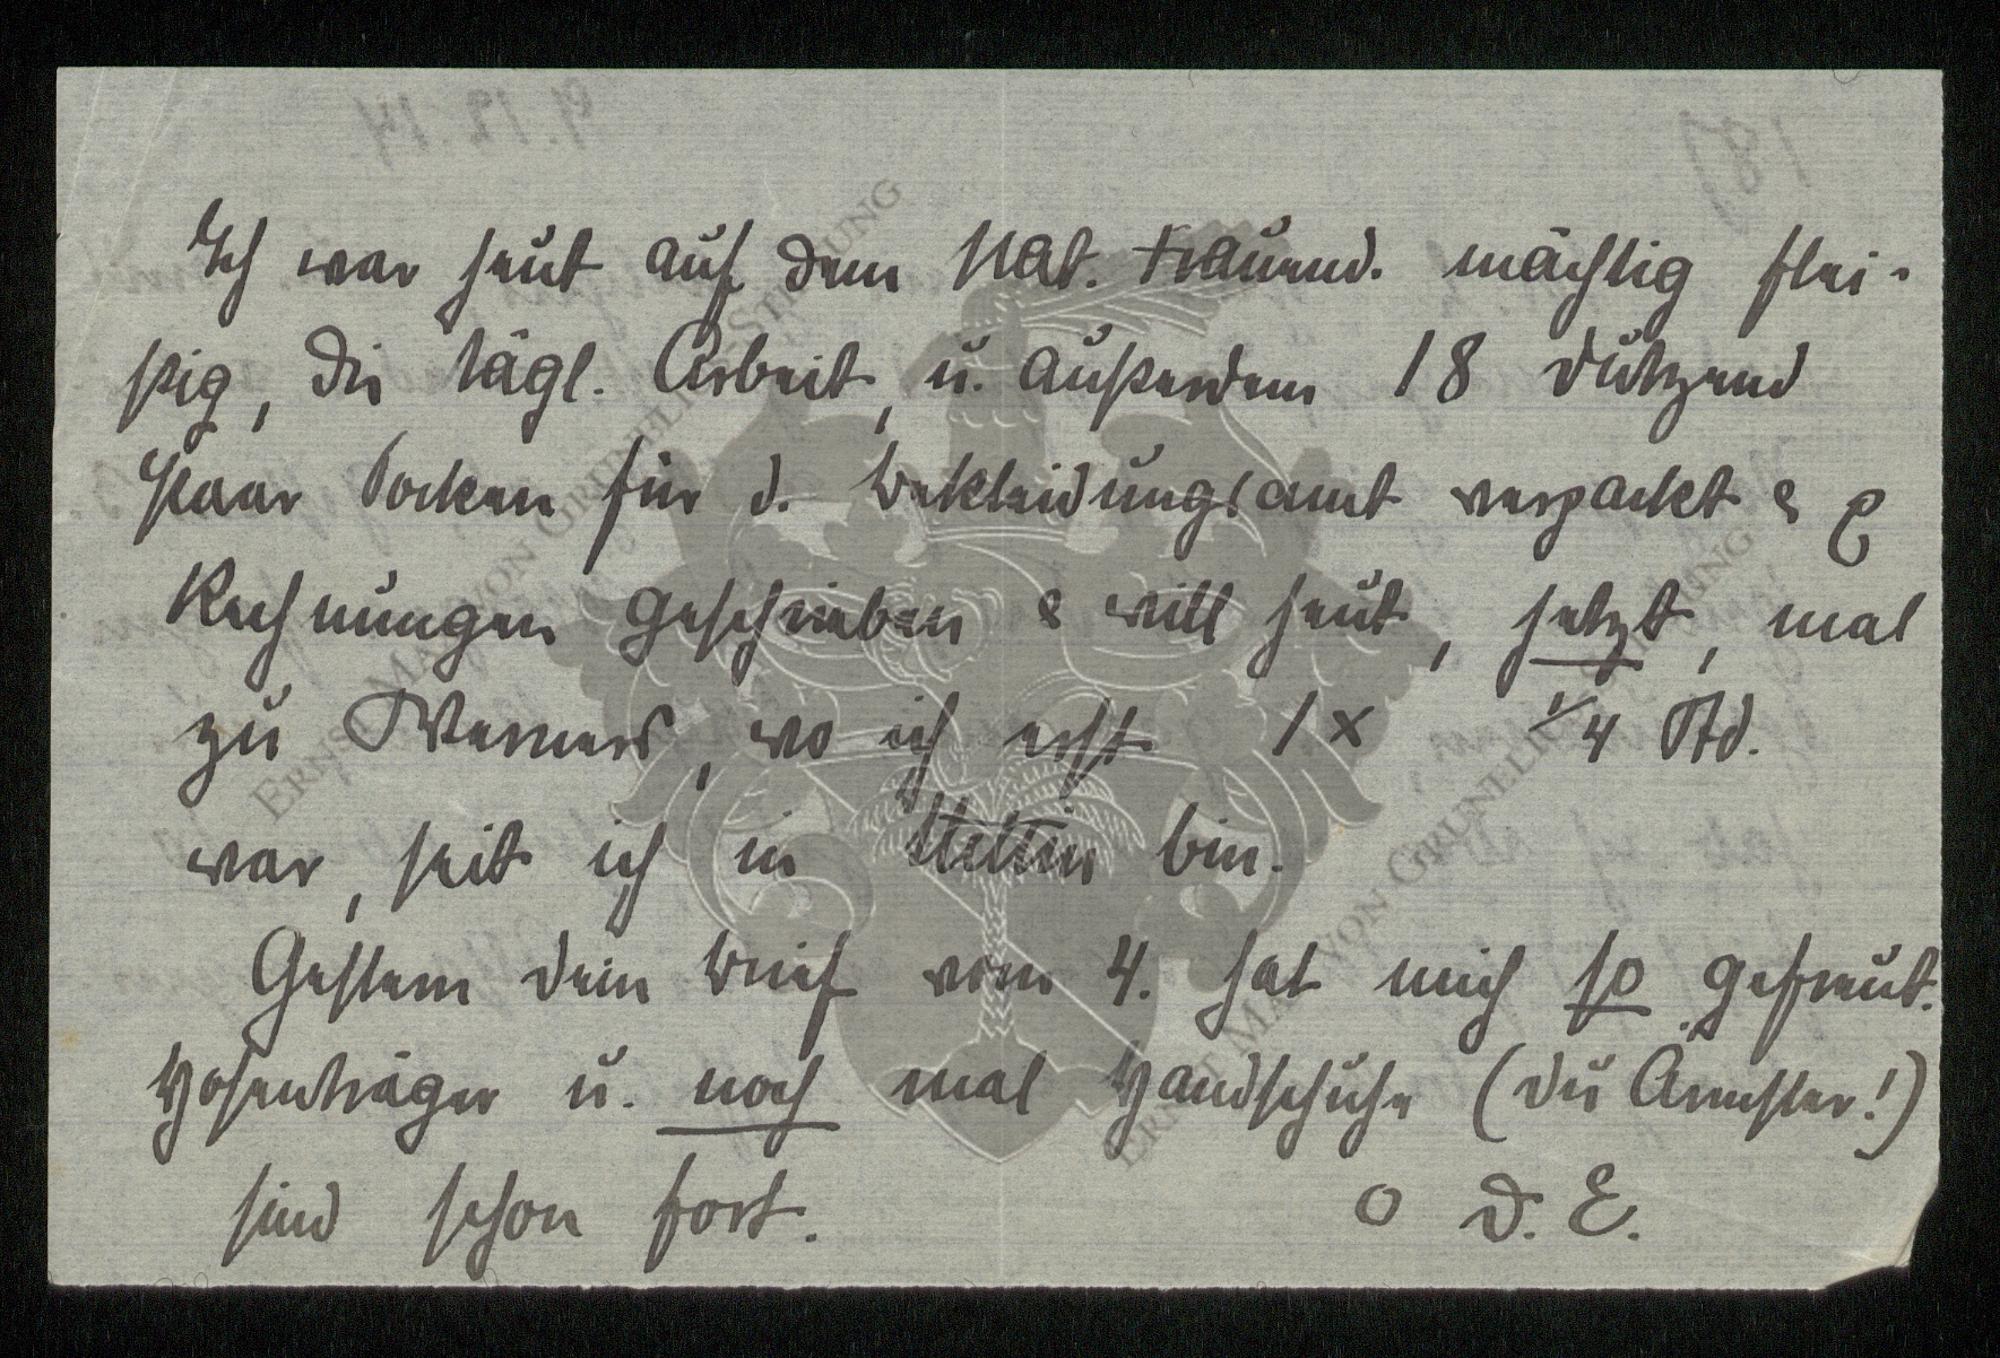 Ich war heut auf dem Nat. Frauend. mächtig flei-
ßig, die tägl. Arbeit, u. außerdem 18 Dutzend
Paar Socken für d. Bekleidungsamt verpackt &
Rechnungen geschrieben & will heut, jetzt, mal
zu Werners, wo ich erst 1 x 1/4 Std.
war, seit ich in Stettin bin.
Gestern dein Brief vom 4. hat mich so gefreut.
Hosenträger u. noch mal Handschuhe (du Ärmster!)
sind schon fort. O D. E.
ERNST MAX VON GRUNELIUS STIFTUNG
ERNST MAX VON GRUNELIUS STIFTUNG